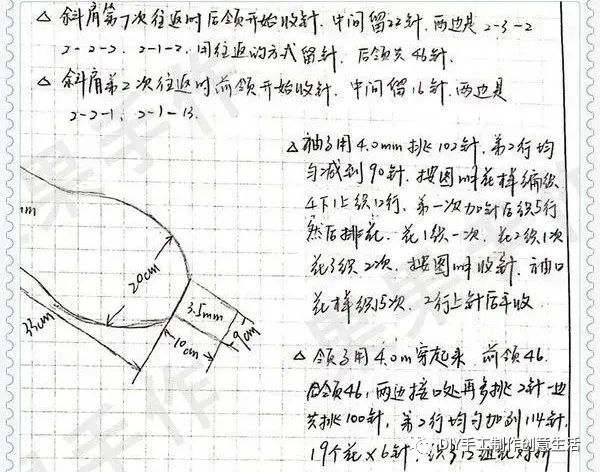 △ 斜肩第7次往返时后领开始收针. 中间留22针. 两边是 2-3-2
2-2-2. 2-1-2. 用往返的方式留针. 后领共46针.
△ 斜肩第2次往返时前领开始收针. 中间留16针. 两边是
2-2-1. 2-1-13.
△ 袖子用4.0mm挑102针. 第2行均
匀减到90针. 按图解花样编织
4下1上织12行. 第一次加针后织5行
然后排花. 花1织一次. 花2织1次
花3织2次. 按图解收针. 袖口
花样织15次. 2行上针后平收.
mm
20cm
33cm
3.5mm
10cm
9cm
△ 领子用4.0m穿起来. 前领46.
后领46, 两边接口处再多挑2针一边
共挑100针, 第2行均匀加到114针.
19个花×6针. 织
DIY手工制作创意生活